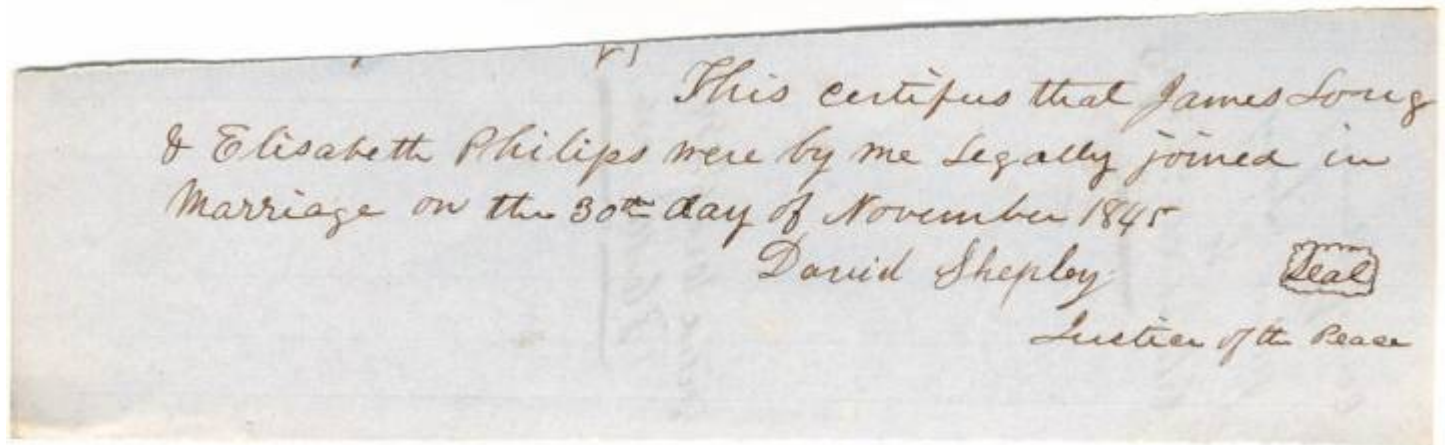 This certifies that James Long
& Elisabeth Philips were by me Legally joined in
Marriage on the 30th day of November 1845
David Shepley Seal
Justice of the Peace